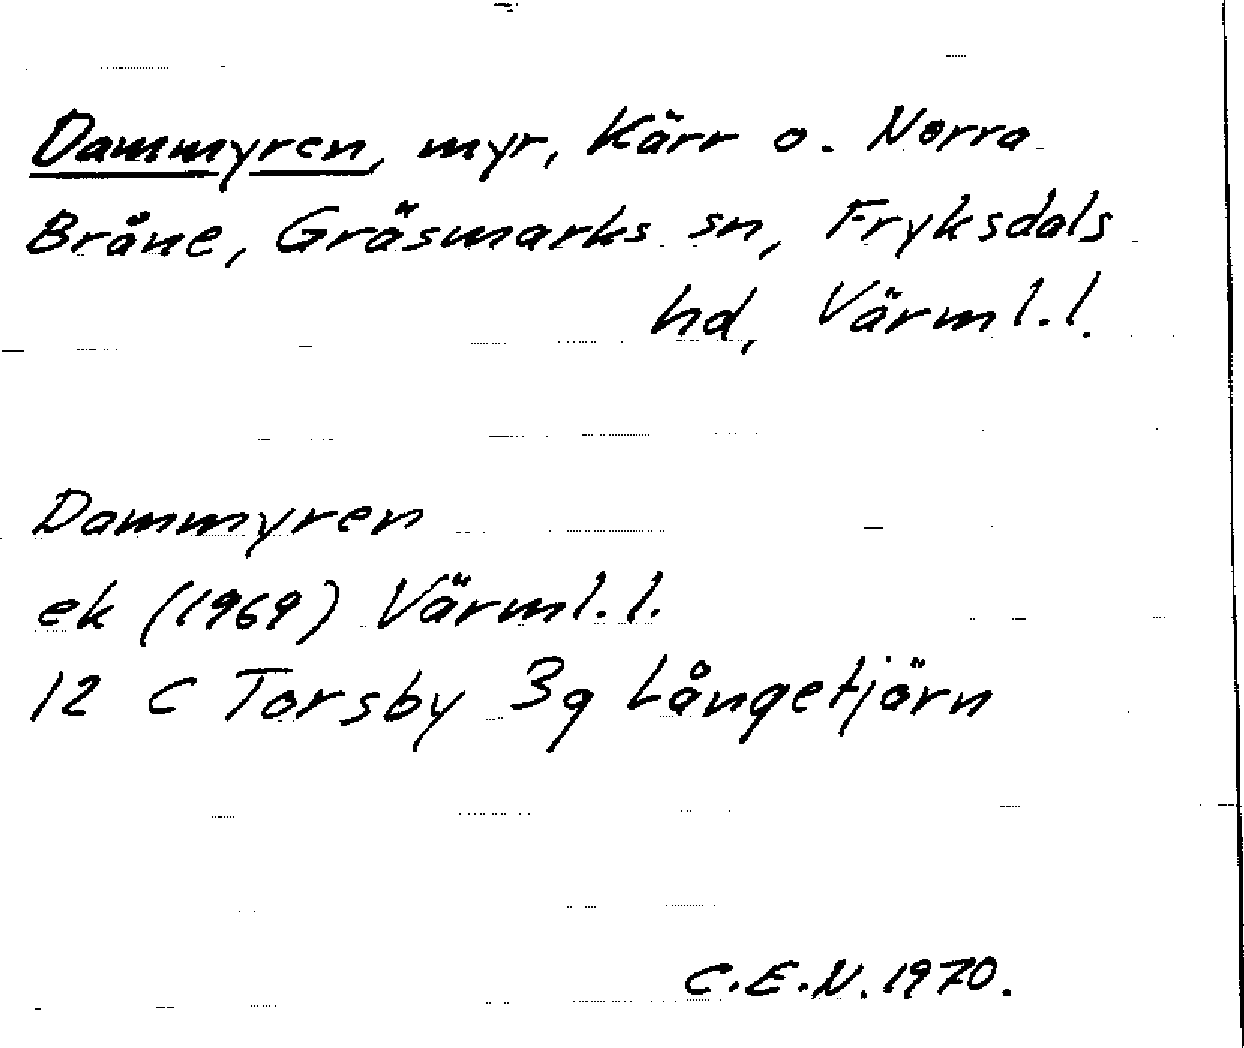 Dammyren, myr, Kärr o. Norra
Bråne, Gräsmarks sn, Fryksdals
hd, Värml.l.
Dammyren
ek (1969) Värml.l.
12 C Torsby 3g Långetjärn
C.E.N. 1970.